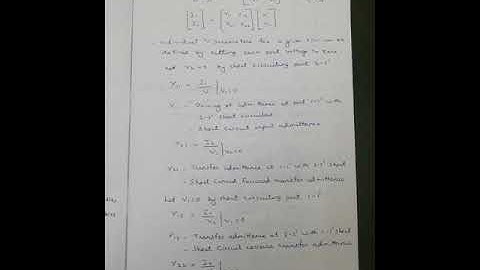 [I1 I2] = [Y11 Y12 Y21 Y22] [V1 V2]
- Individual Y parameters for a given
defined by setting each port voltage to zero
Let V2=0 by short circuiting port 2-2'
Y11 = I1/V1 |V2=0
Driving pt admittance at port 1-1' with
2-2' short circuited
- Short circuit input admittance
Y21 = I2/V1 |V2=0
Y21 - Transfer admittance at 1-1' with 2-2' short
- Short circuit forward transfer admittance
Let V1=0 by short circuiting port 1-1'
Y12 = I1/V2 |V1=0
Y12 - Transfer admittance at 2-2' with 1-1' short
- Short circuit reverse transfer admittance
Y22 = I2